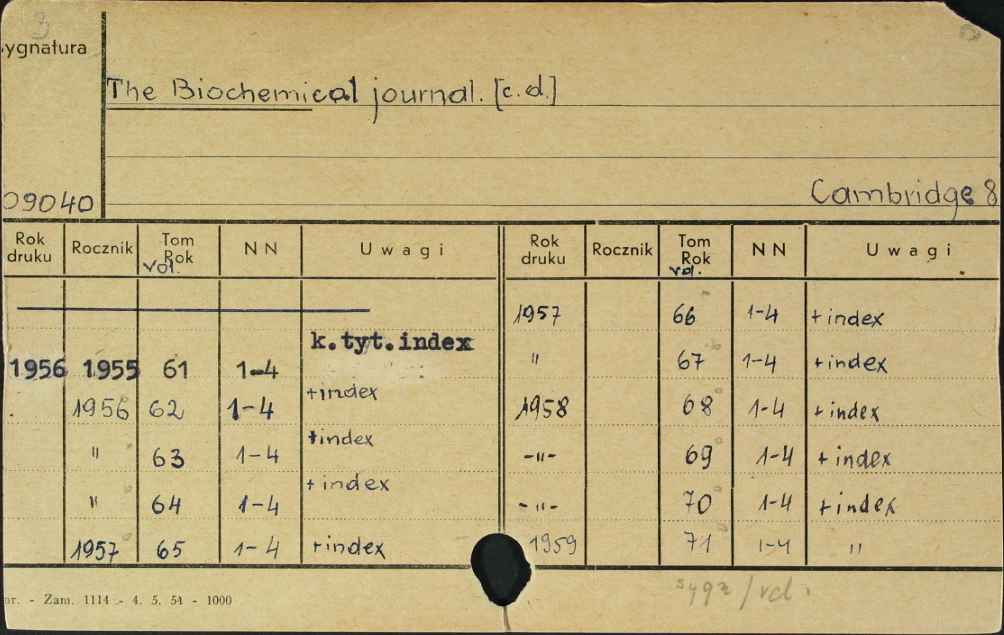 3
ygnatura
The Biochemical journal. [c.d.]
09040
Cambridge 8
Rok druku Rocznik Tom Rok vol. NN Uwagi Rok druku Rocznik Tom Rok vol. NN Uwagi
1957 66 1-4 + index
k.tyt.index
1956 1955 61 1-4 " 67 1-4 + index
+index
1956 62 1-4 1958 68 1-4 + index
+index
" 63 1-4 -"- 69 1-4 + index
+ index
" 64 1-4 -"- 70 1-4 + index
1957 65 1-4 +index 1959 71 1-4 "
or. - Zam. 1114 - 4. 5. 54 - 1000
sygn/vol.